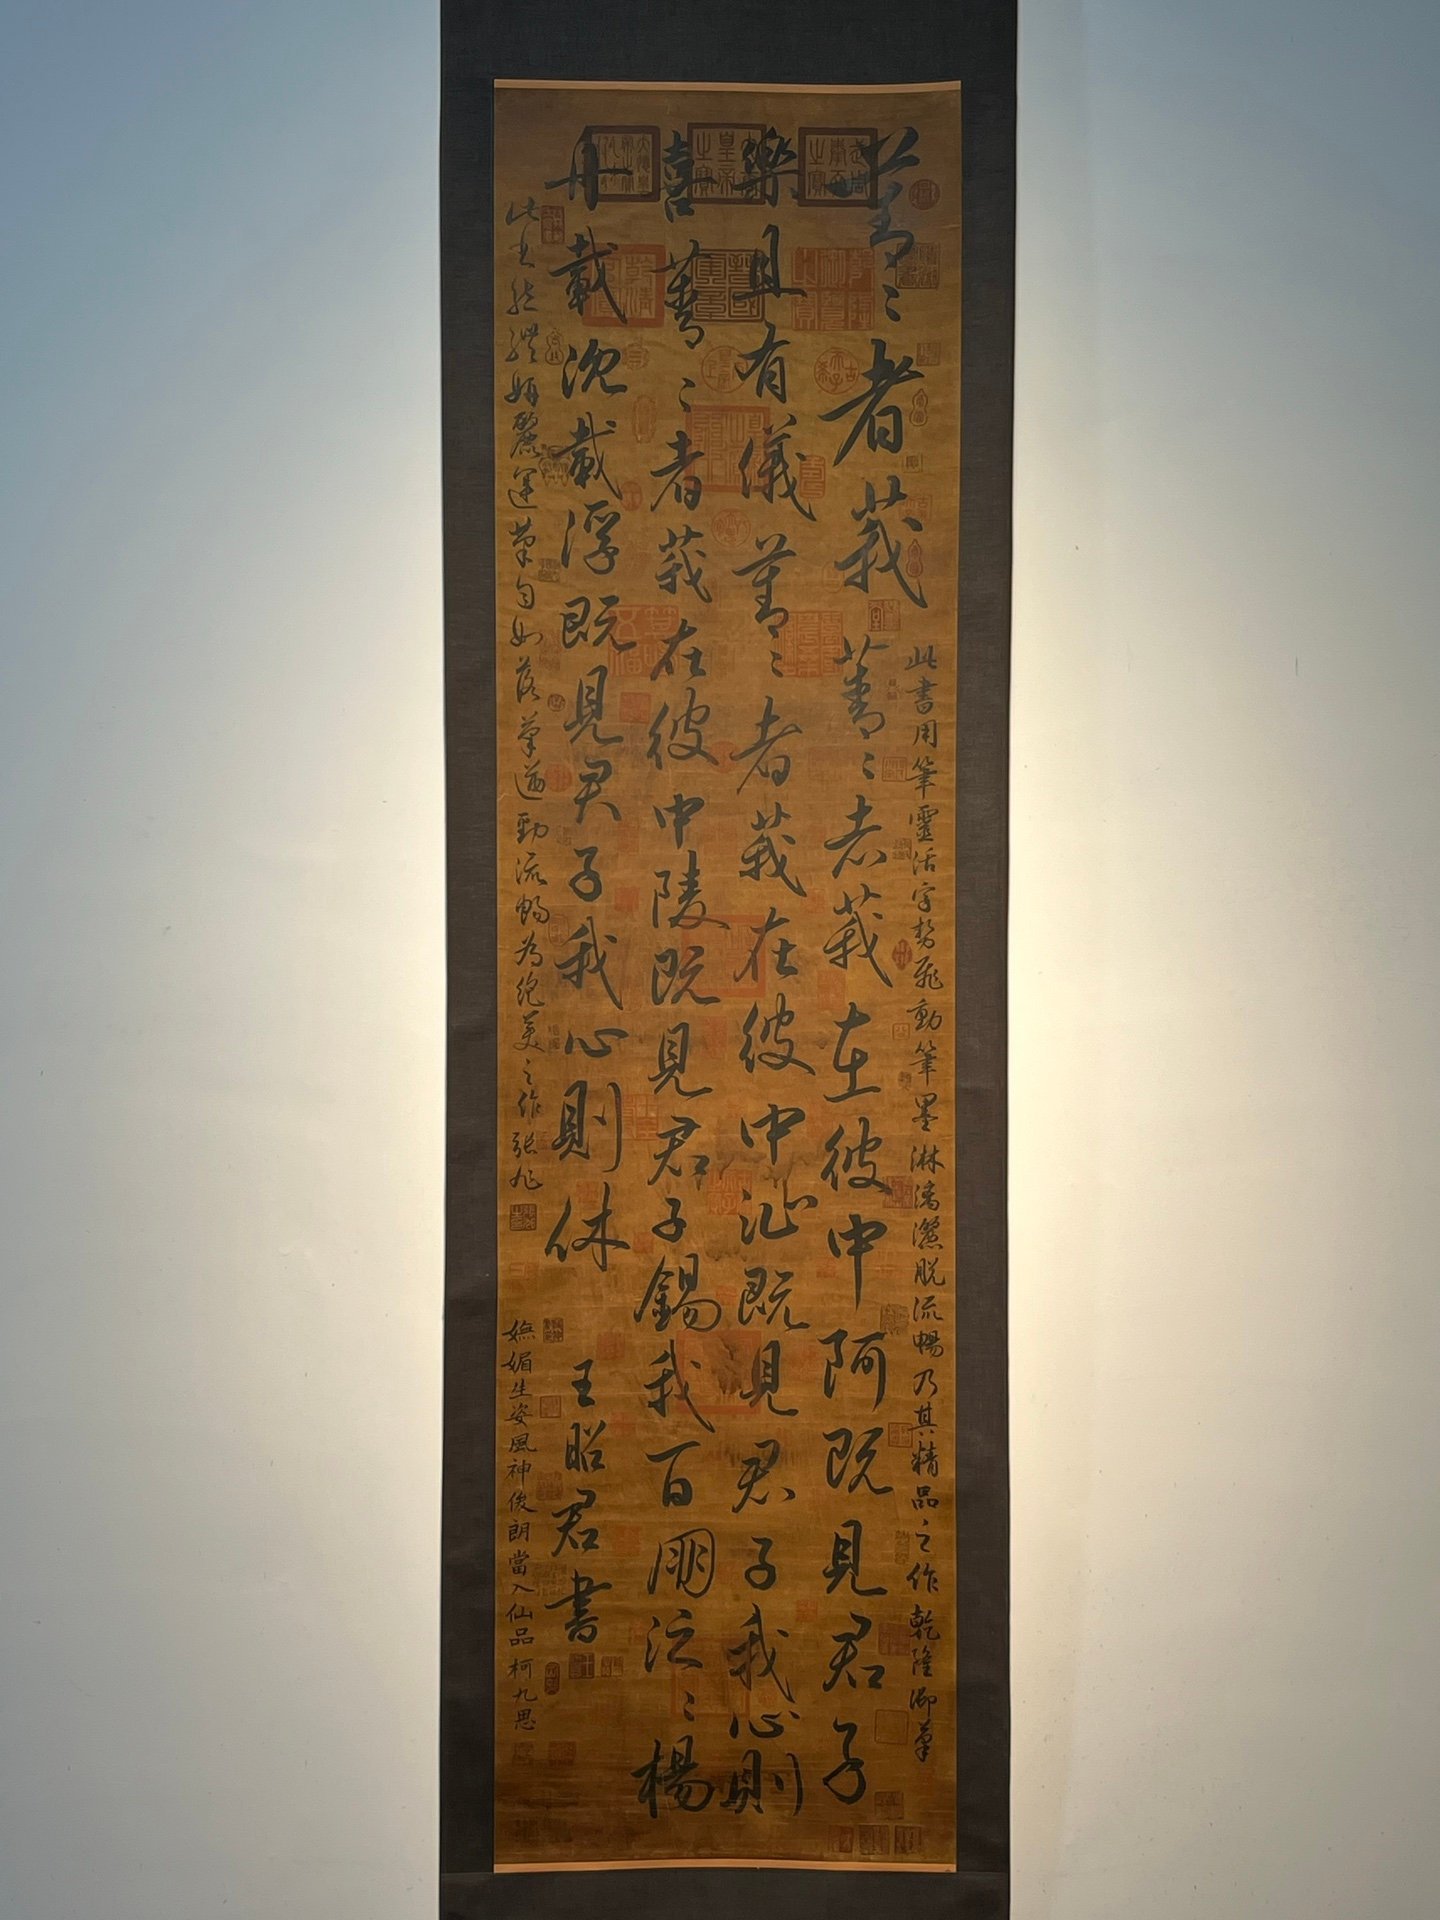 此書用筆靈活字勢飛動筆墨淋漓灑脫流暢乃其精品之作乾隆御筆
菁〻者莪菁〻者莪在彼中阿既見君子
樂且有儀菁〻者莪在彼中沚既見君子我心則
喜菁〻者莪在彼中陵既見君子錫我百朋泛〻楊
舟載沈載浮既見君子我心則休
王昭君書
此書結體妍麗運筆自如落筆遒勁流暢為絕美之作張旭
嫵媚生姿風神俊朗當入仙品柯九思